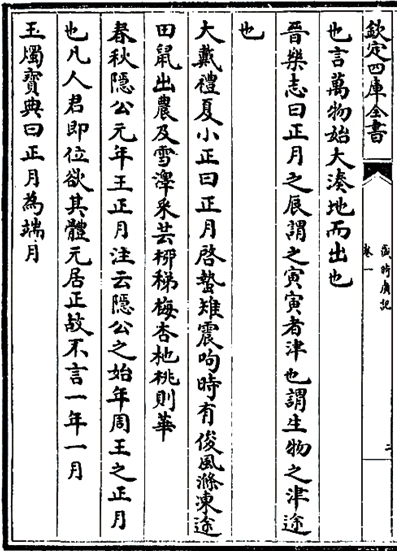 欽定四庫全書
歲時廣記
卷一
二
也言萬物始大湊地而出也
晉樂志曰正月之辰謂之寅寅者津也謂生物之津途
也
大戴禮夏小正曰正月啓蟄雉震呴時有俊風滌凍途
田鼠出農及雪澤采芸桺稊梅杏杝桃則華
春秋隱公元年王正月注云隱公之始年周王之正月
也凡人君即位欲其體元居正故不言一年一月
玉燭寶典曰正月為端月